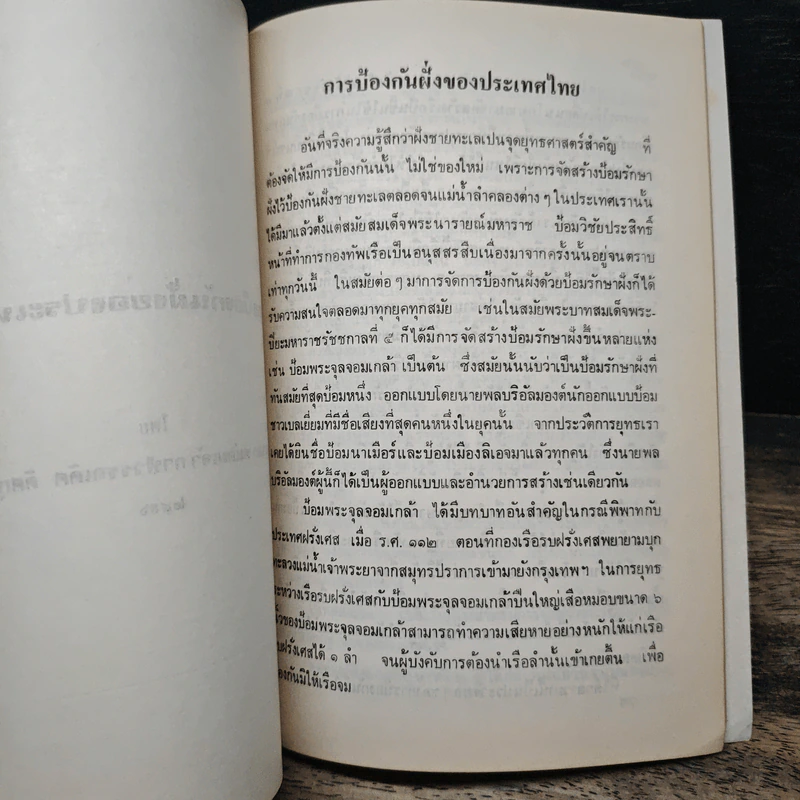 การป้องกันฝั่งของประเทศไทย
อันที่จริงความรู้สึกว่าฝั่งชายทะเลเปนจุดยุทธศาสตร์สำคัญ ที่
ต้องจัดให้มีการป้องกันนั้น ไม่ใช่ของใหม่ เพราะการจัดสร้างป้อมรักษา
ฝั่งไว้ป้องกันฝั่งชายทะเลตลอดจนแม่น้ำลำคลองต่าง ๆ ในประเทศเรานั้น
ได้มีมาแล้วตั้งแต่สมัยสมเด็จพระนารายณ์มหาราช ป้อมวิชัยประสิทธิ์
หน้าที่ทำการกองทัพเรือเป็นอนุสสรสืบเนื่องมาจากครั้งนั้นอยู่จนตราบ
เท่าทุกวันนี้ ในสมัยต่อ ๆ มาการจัดการป้องกันฝั่งด้วยป้อมรักษาฝั่งก็ได้
รับความสนใจตลอดมาทุกยุคทุกสมัย เช่นในสมัยพระบาทสมเด็จพระ-
ปิยะมหาราชรัชชกาลที่ ๕ ก็ได้มีการจัดสร้างป้อมรักษาฝั่งขึ้นหลายแห่ง
เช่น ป้อมพระจุลจอมเกล้า เป็นต้น ซึ่งสมัยนั้นนับว่าเป็นป้อมรักษาฝั่งที่
ทันสมัยที่สุดป้อมหนึ่ง ออกแบบโดยนายพลบริอัลมองต์นักออกแบบป้อม
ชาวเบลเยี่ยมที่มีชื่อเสียงที่สุดคนหนึ่งในยุคนั้น จากประวัติการยุทธเรา
เคยได้ยินชื่อป้อมนาเมือร์และป้อมเมืองลิเอจมาแล้วทุกคน ซึ่งนายพล
บริอัลมองต์ผู้นี้ก็ได้เป็นผู้ออกแบบและอำนวยการสร้างเช่นเดียวกัน
ป้อมพระจุลจอมเกล้า ได้มีบทบาทอันสำคัญในกรณีพิพาทกับ
ประเทศฝรั่งเศส เมื่อ ร.ศ. ๑๑๒ ตอนที่กองเรือรบฝรั่งเศสพยายามบุก
ทะลวงแม่น้ำเจ้าพระยาจากสมุทรปราการเข้ามายังกรุงเทพฯ ในการยุทธ
ระหว่างเรือรบฝรั่งเศสกับป้อมพระจุลจอมเกล้าปืนใหญ่เสือหมอบขนาด ๖
นิ้วของป้อมพระจุลจอมเกล้าสามารถทำความเสียหายอย่างหนักให้แก่เรือ
รบฝรั่งเศสได้ ๑ ลำ จนผู้บังคับการต้องนำเรือลำนั้นเข้าเกยตื้น เพื่อ
ป้องกันมิให้เรือจม